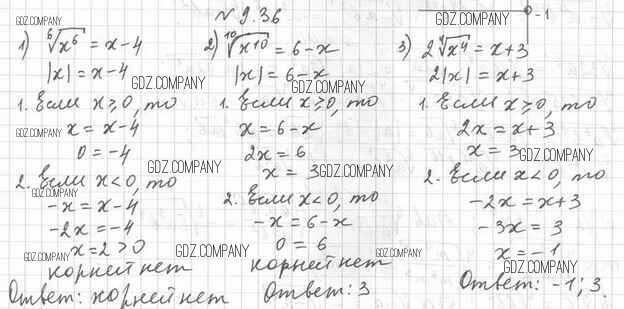 № 9.36
GDZ.COMPANY
-1
GDZ.COMPANY
1) ⁶√x⁶ = x-4
|x| = x-4
GDZ.COMPANY
1. Если x≥0, то
GDZ.COMPANY
x = x-4
0 = -4
GDZ.COMPANY
2. Если x<0, то
GDZ.COMPANY
-x = x-4
-2x = -4
GDZ.COMPANY
x = 2 > 0
корней нет
Ответ: корней нет
2) ¹⁰√x¹⁰ = 6-x
|x| = 6-x
GDZ.COMPANY
1. Если x≥0, то
x = 6-x
2x = 6
x = 3
GDZ.COMPANY
2. Если x<0, то
-x = 6-x
GDZ.COMPANY
0 = 6
корней нет
Ответ: 3
3) 2⁴√x⁴ = x+3
2|x| = x+3
1. Если x≥0, то
2x = x+3
x = 3
GDZ.COMPANY
2. Если x<0, то
-2x = x+3
-3x = 3
GDZ.COMPANY
x = -1
GDZ.COMPANY
Ответ: -1; 3.